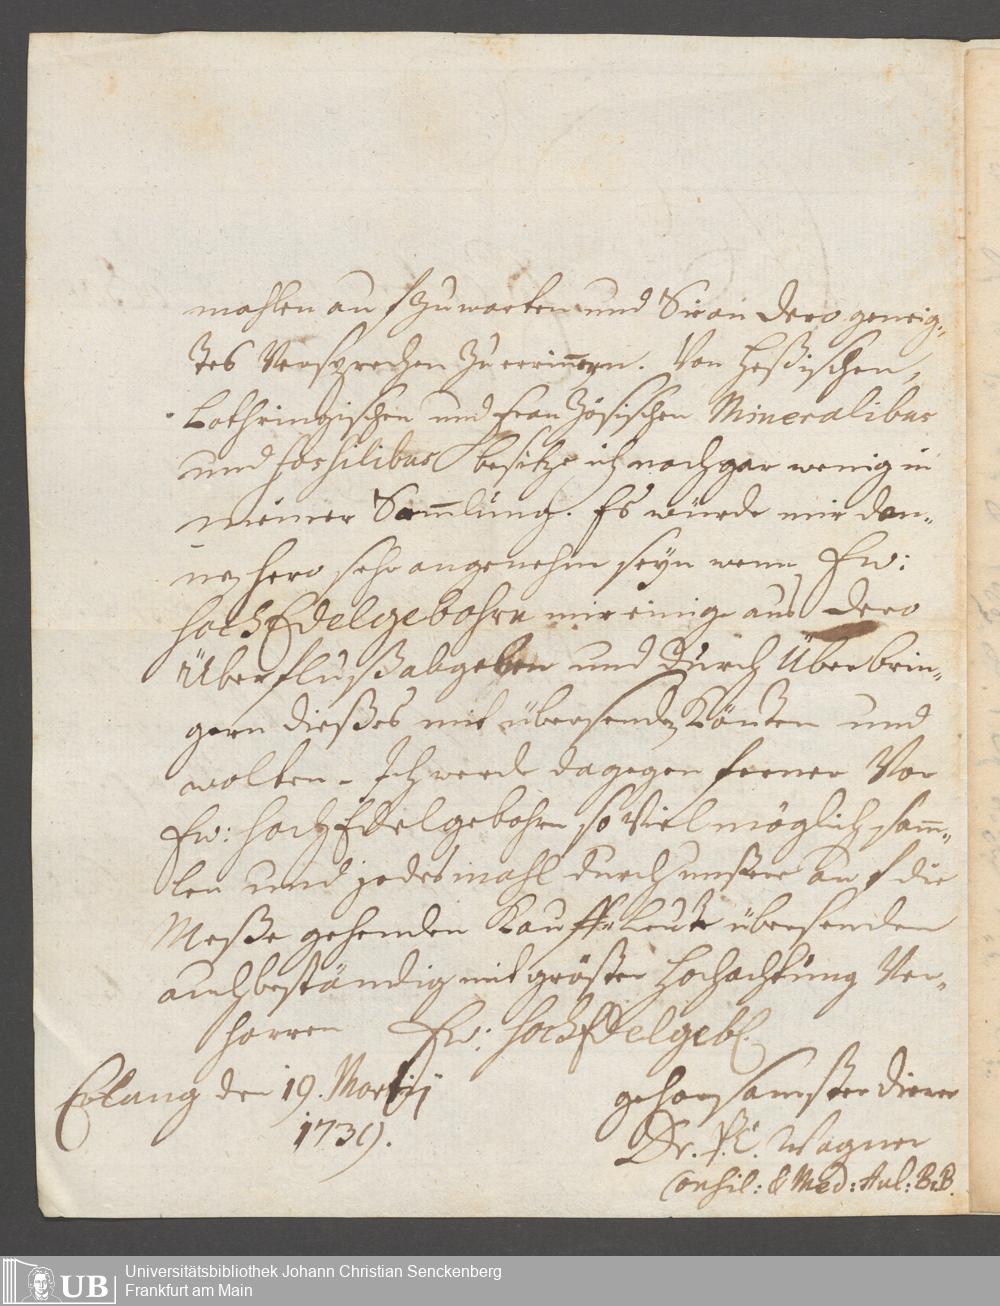 mahlen auf zuwarten und Sie an dero geneig„
tes Versprechen zu errinnern. Von Heßischen,
Lothringischen und Französischen Mineralibus
und fossilibus besitze ich noch gar wenig in
meiner Sammlung. Es würde mir den„
nenhero sehr angenehm seyn wenn Ew:
HochEdelgebohrn mir einige aus dero
Überfluß abgeben und durch Überbrin„
gern dießes mit übersenden könten und
wolten. Ich werde dagegen ferner Vor
Ew: HochEdelgebohrn so Viel möglich sam̄„
len und jedesmahl durch unßere auf die
Meße gehenden Kauffleute übersenden
auch beständig mit größter Hochachtung Ver„
harren Ew: HochEdelgebl.
Erlang den 19. Martij
1739.
gehorsamster diener
Dr. P. C. Wagner
Consil: & Med: Aul: B. B.
UB
Universitätsbibliothek Johann Christian Senckenberg
Frankfurt am Main